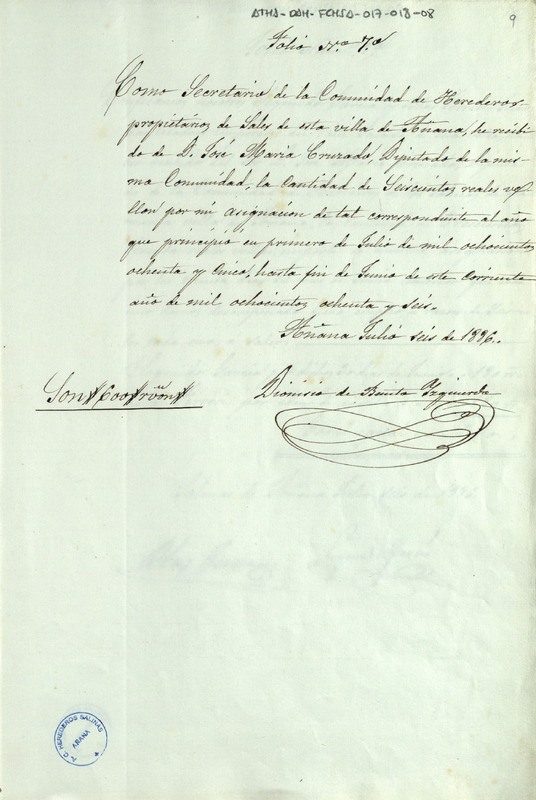 ATHA-DAH-FCHSA-017-018-08
9
Folio N.º 7.º
Como Secretario de la Comunidad de Herederos
propietarios de Sales de esta villa de Añana, he recibi
do de D. José Maria Cruzado, Diputado de la mis-
mo Comunidad, la Cantidad de Seiscientos reales ve
llon por mi asignacion de tal correspondiente al año
que principió en primero de Julio de mil ochocientos
ochenta y cinco, hasta fin de Junio de este corriente
año de mil ochocientos ochenta y seis.
Añana Julio seis de 1886.
Son 600 rvon
Dionisio de Benita Yzquierdo
A. C. HEREDEROS SALINAS
AÑANA